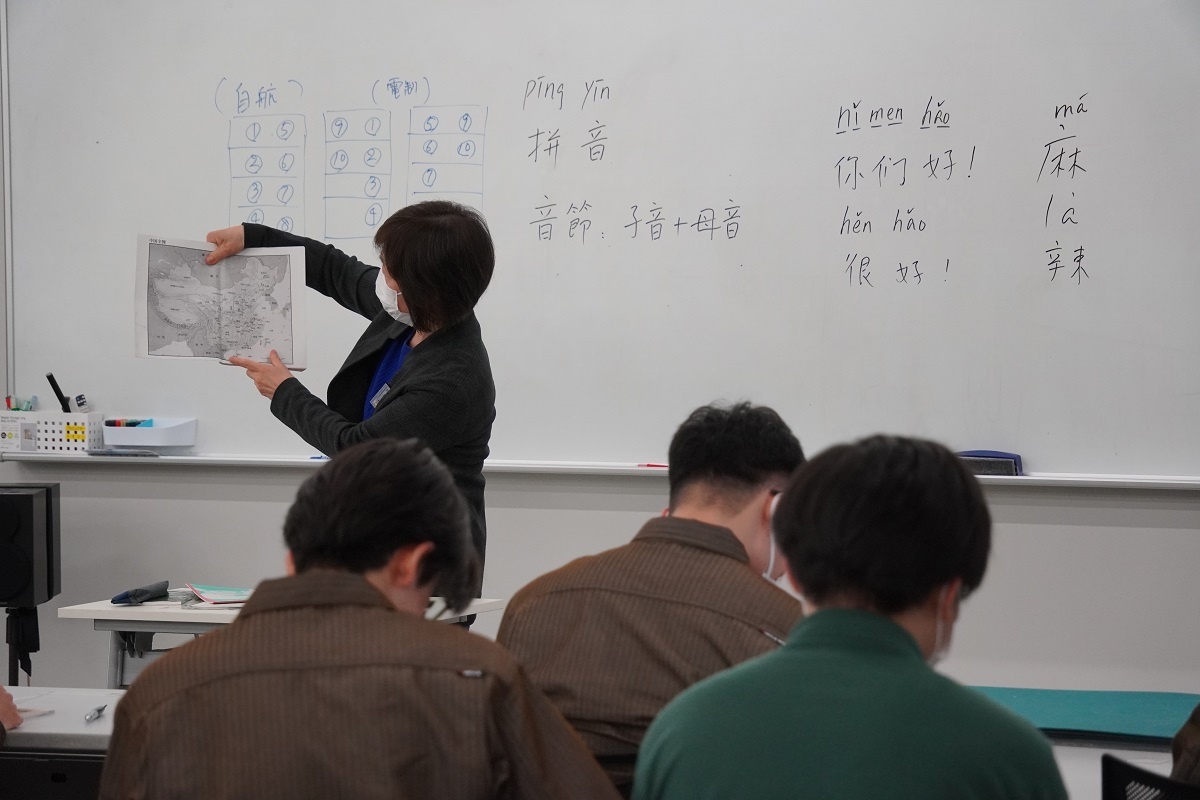 (自航)
(電制)
① ⑤
② ⑥
③ ⑦
④ ⑧
⑨ ①
⑩ ②
③
④
⑤ ⑨
⑥ ⑩
⑦
pīng yīn
拼音
音節：子音+母音
nǐ men hǎo
你们好！
hěn hǎo
很好！
má
麻
là
辣